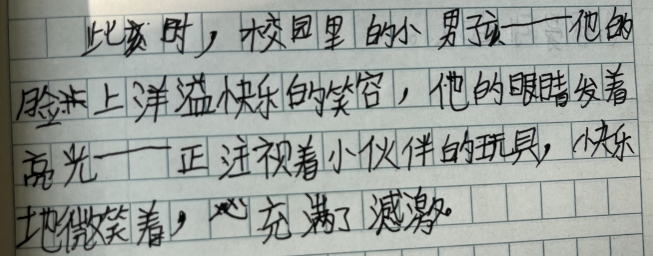 此刻时，校园里的小男孩——他的
脸上洋溢快乐的笑容，他的眼睛发着
亮光——正注视着小伙伴的玩具，快乐
地微笑着，心充满了感激。